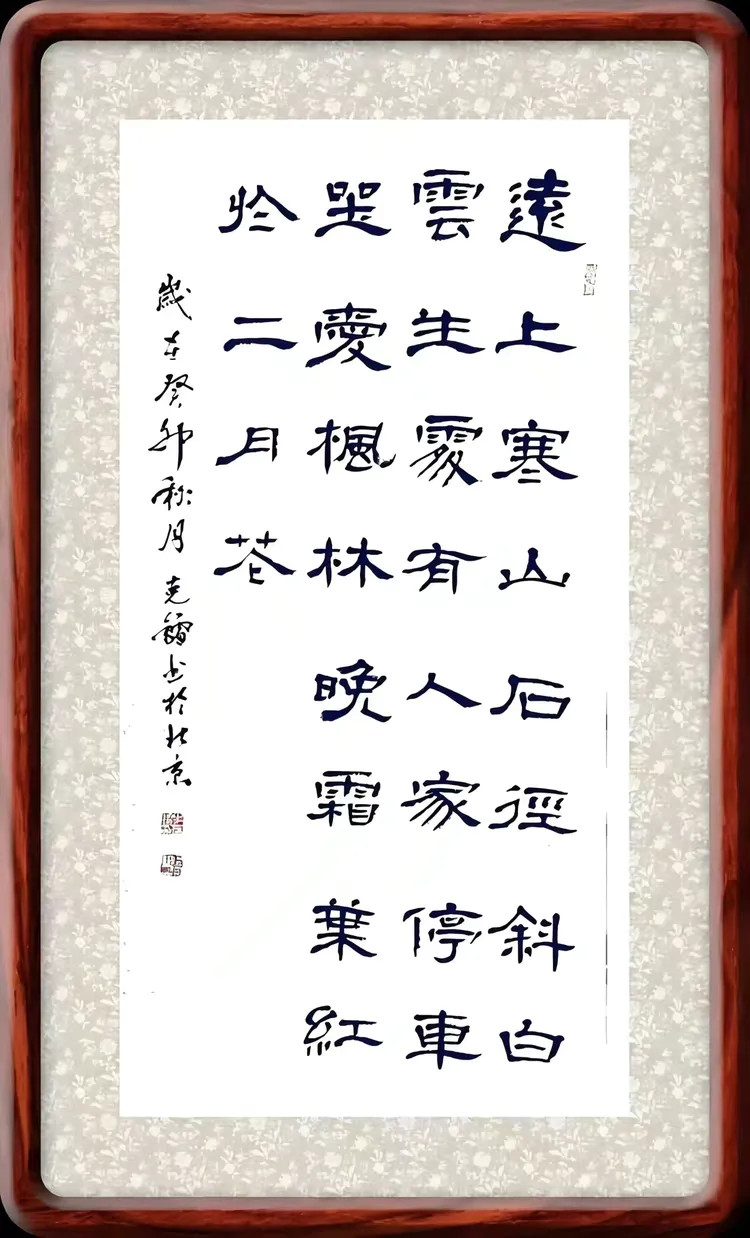 遠上寒山石徑斜白
雲生處有人家停車
坐愛楓林晚霜葉紅
於二月花
歲在癸卯秋月克鐳书於北京